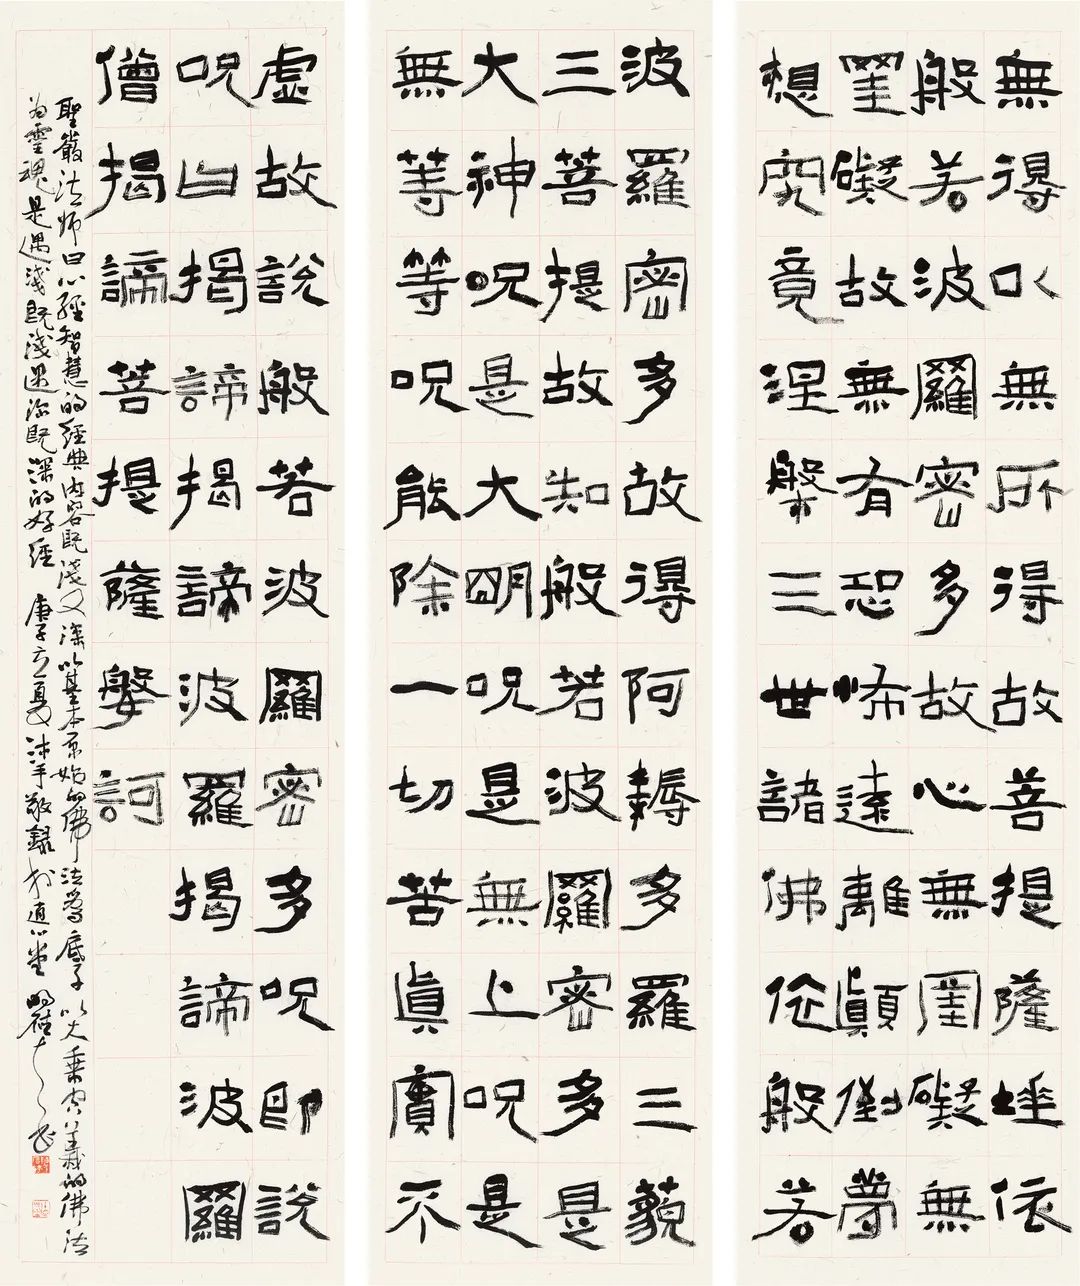 無得以無所得故菩提薩埵依
般若波羅密多故心無罣礙無
罣礙故無有恐怖遠離顛倒夢
想究竟涅槃三世諸佛依般若
波羅密多故得阿耨多羅三藐
三菩提故知般若波羅密多是
大神呪是大明呪是無上呪是
無等等呪能除一切苦眞實不
虛故說般若波羅密多呪即說
呪曰揭諦揭諦波羅揭諦波羅
僧揭諦菩提薩婆訶
聖嚴法師曰心經智慧的經典內容既淺又深以基本原始的佛法為底子以大乘空義的佛法
為靈魂是遇淺既淺遇深既深的好經 庚子立夏沐手敬錄於直心堂